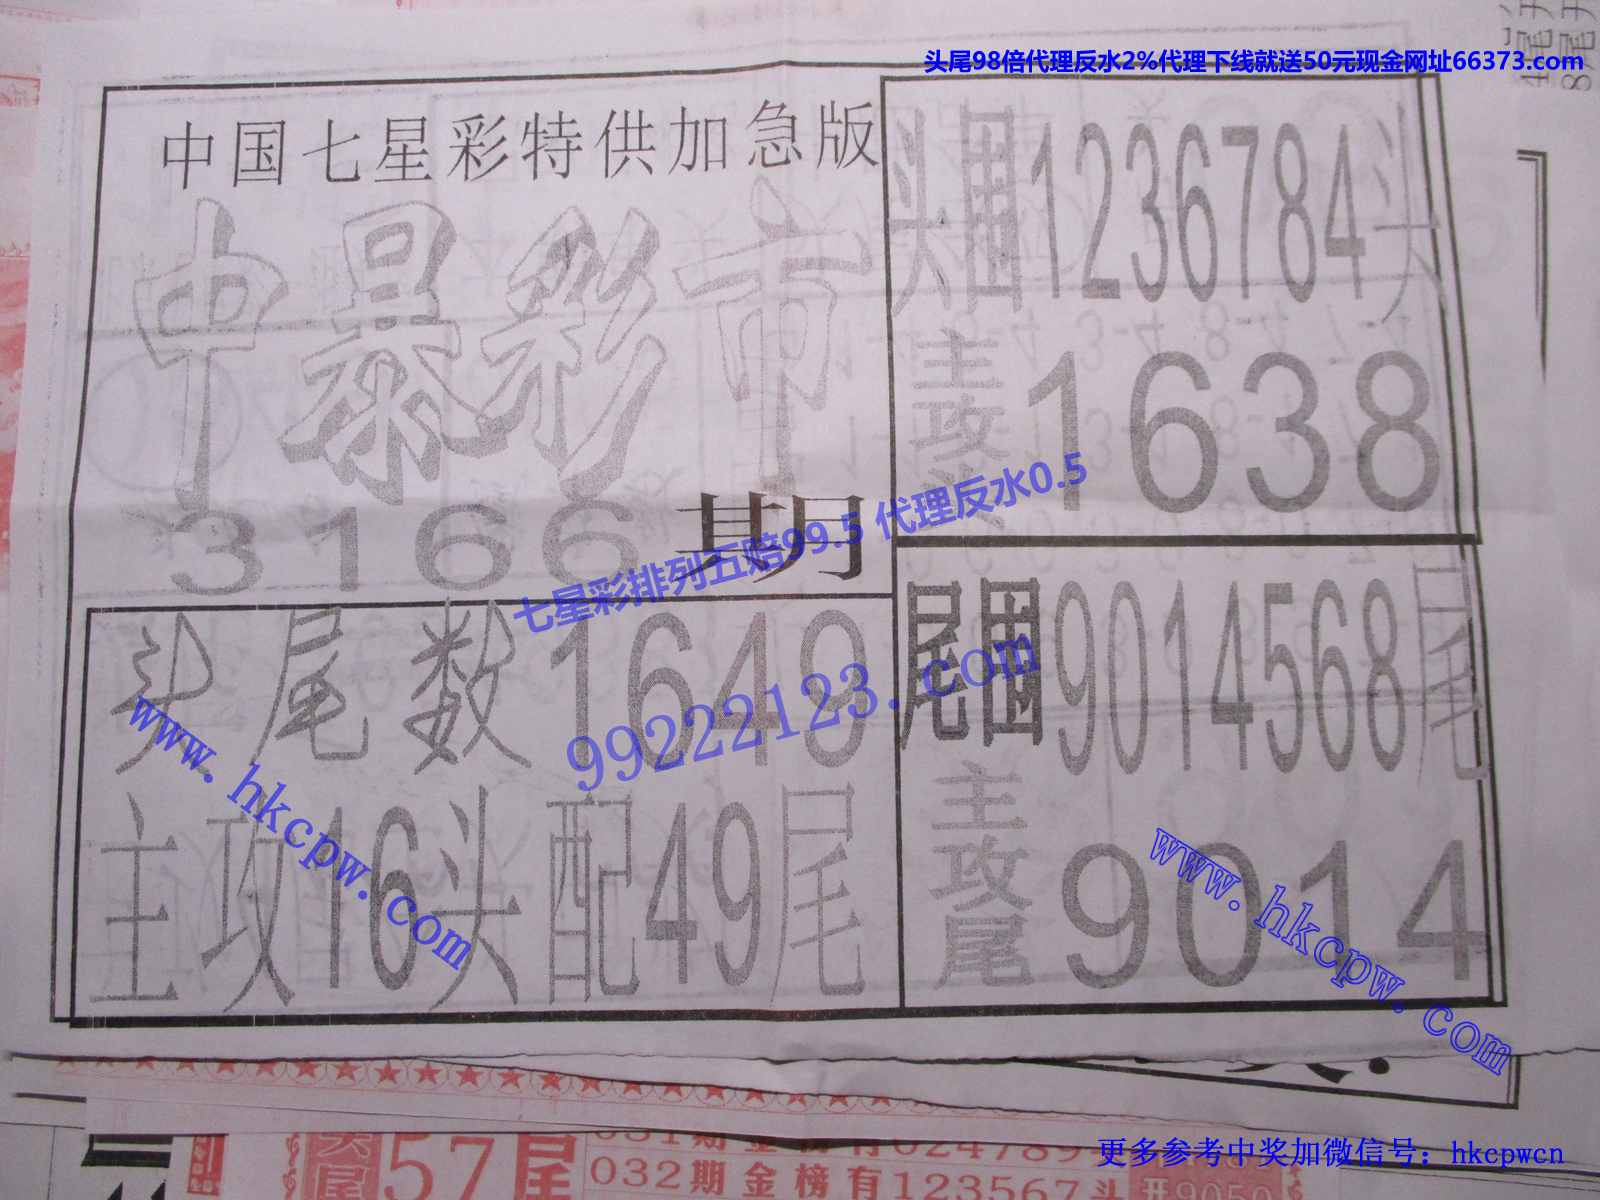 头尾98倍代理反水2%代理下线就送50元现金网址66373.com
中国七星彩特供加急版
中暴彩市
3166期
头尾数1649
主攻16头配49尾
头围1236784头
主攻头1638
尾围9014568尾
主攻尾9014
七星彩排列五赔99.5 代理反水0.5
99222123.com
www.hkcpw.com
www.hkcpw.com
头尾 57尾
032期金榜有123567头
开9050
更多参考中奖加微信号：hkcpwcn